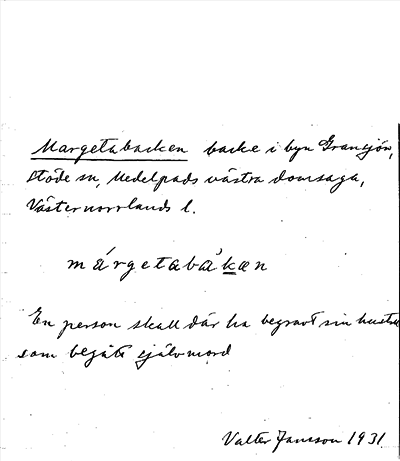 Margetabacken backe i byn Gransjön,
Stöde sn, Medelpads västra domsaga,
Västernorrlands l.
márgetabákan
En person skall där ha begravt sin hustru
som begått självmord
Valter Jansson 1931